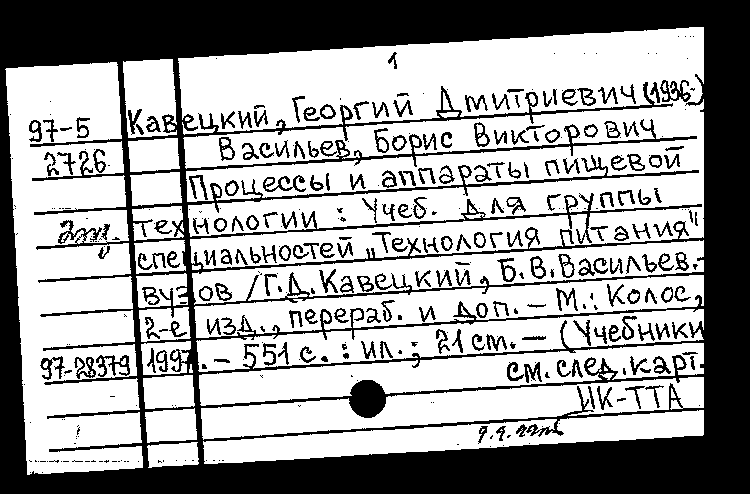 1
97-5 Кавецкий, Георгий Дмитриевич (1936-)
2726 Васильев, Борис Викторович
Процессы и аппараты пищевой
2эк. технологии : Учеб. для группы
специальностей „Технология питания"
вузов / Г.Д. Кавецкий, Б.В. Васильев.-
2-е изд., перераб. и доп. — М.: Колос,
97-28379 1997. – 551 с. : ил. ; 21 см. — (Учебники
см. след. карт.
ИК-ТТА